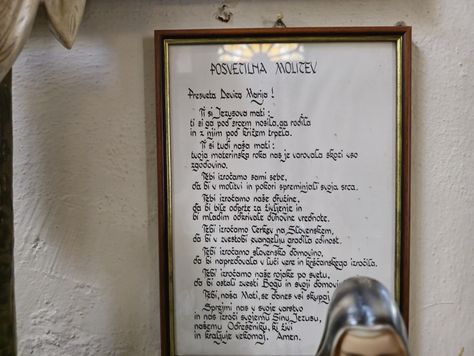 POSVETILNA MOLITEV
Presveta Devica Marija!
Ti si Jezusova mati:
ti si ga pod srcem nosila, ga rodila
in z njim pod križem trpela.
Ti si tudi naša mati:
tvoja materinska roka nas je varovala skozi vso
zgodovino.
Tebi izročamo sami sebe,
da bi v molitvi in pokori spreminjali svoja srca.
Tebi izročamo naše družine,
da bi bile odprte za življenje in
bi mladim odkrivale duhovne vrednote.
Tebi izročamo Cerkev na Slovenskem,
da bi v zvestobi evangeliju gradila edinost.
Tebi izročamo slovensko domovino,
da bi napredovala v luči vere in krščanskega izročila.
Tebi izročamo naše rojake po svetu,
da bi ostali zvesti Bogu in svoji domovini
Tebi, naša Mati, se danes vsi skupaj
Sprejmi nas v svoje varstvo
in nas izroči svojemu Sinu, Jezusu,
našemu Odrešeniku, ki živi
in kraljuje vekomaj. Amen.